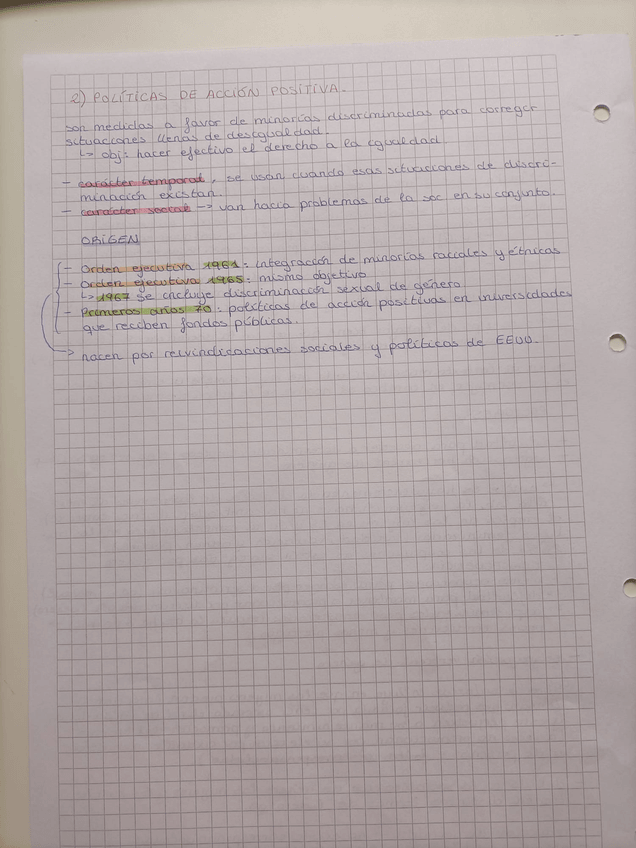 2) POLÍTICAS DE ACCIÓN POSITIVA.
son medidas a favor de minorías discriminadas para corregir
situaciones llenas de desigualdad.
↳ obj: hacer efectivo el derecho a la igualdad
- carácter temporal, se usan cuando esas situaciones de discri-
minación existan.
- carácter social → van hacia problemas de la soc en su conjunto.
ORIGEN
- Orden ejecutiva 1961: integración de minorías raciales y étnicas
- Orden ejecutiva 1965: mismo objetivo
↳ 1967 se incluye discriminación sexual de género
- Primeros años 70: políticas de acción positivas en universidades
que reciben fondos públicos.
→ nacen por reivindicaciones sociales y políticas de EEUU.